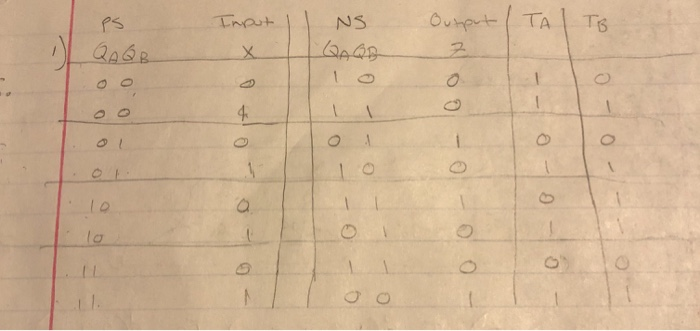 PS Input NS Output TA TB
1) QAQB X QAQB Z
00 0 10 0 1 0
00 1 11 0 1 1
01 0 01 1 0 0
01 1 10 0 1 1
10 0 11 1 0 1
10 1 01 0 1 1
11 0 11 0 0 0
11 1 00 1 1 1